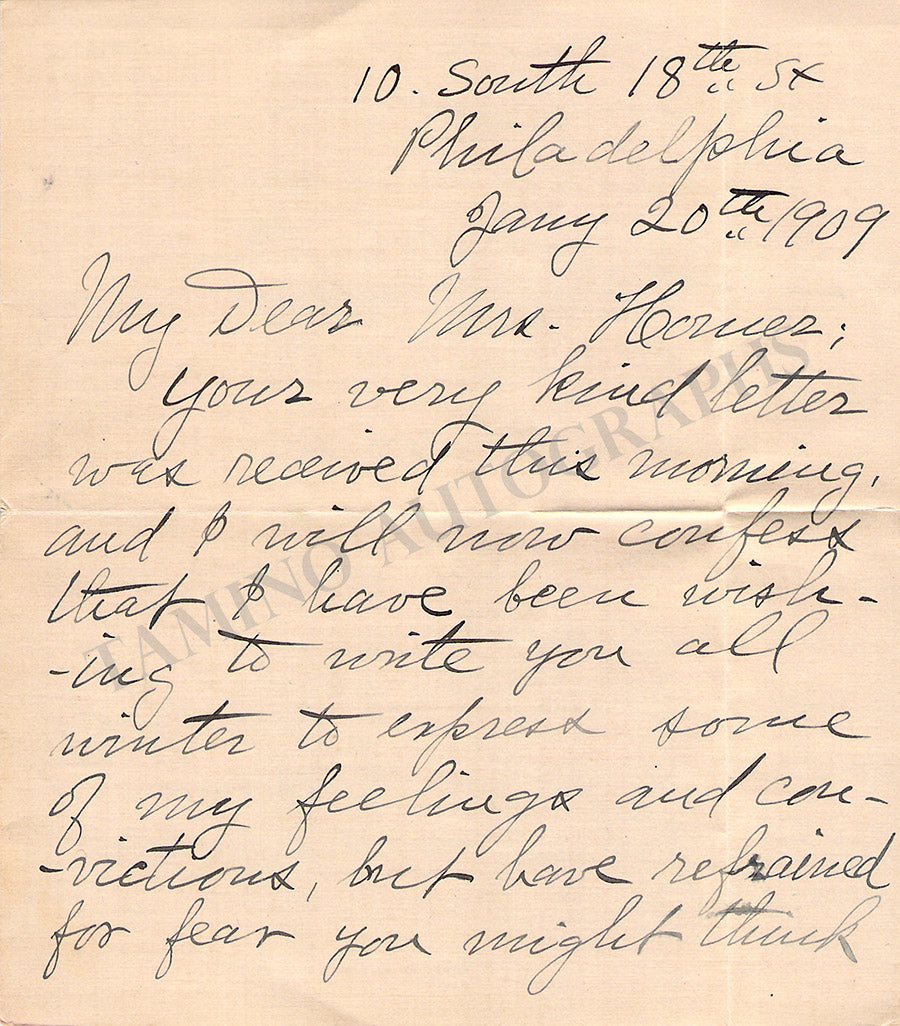 10. South 18th St
Philadelphia
Jany 20th 1909
My Dear Mrs. Homer;
Your very kind letter
was received this morning,
and I will now confess
that I have been wish-
-ing to write you all
winter to express some
of my feelings and con-
-victions, but have refrained
for fear you might think
TAMINO AUTOGRAPHS